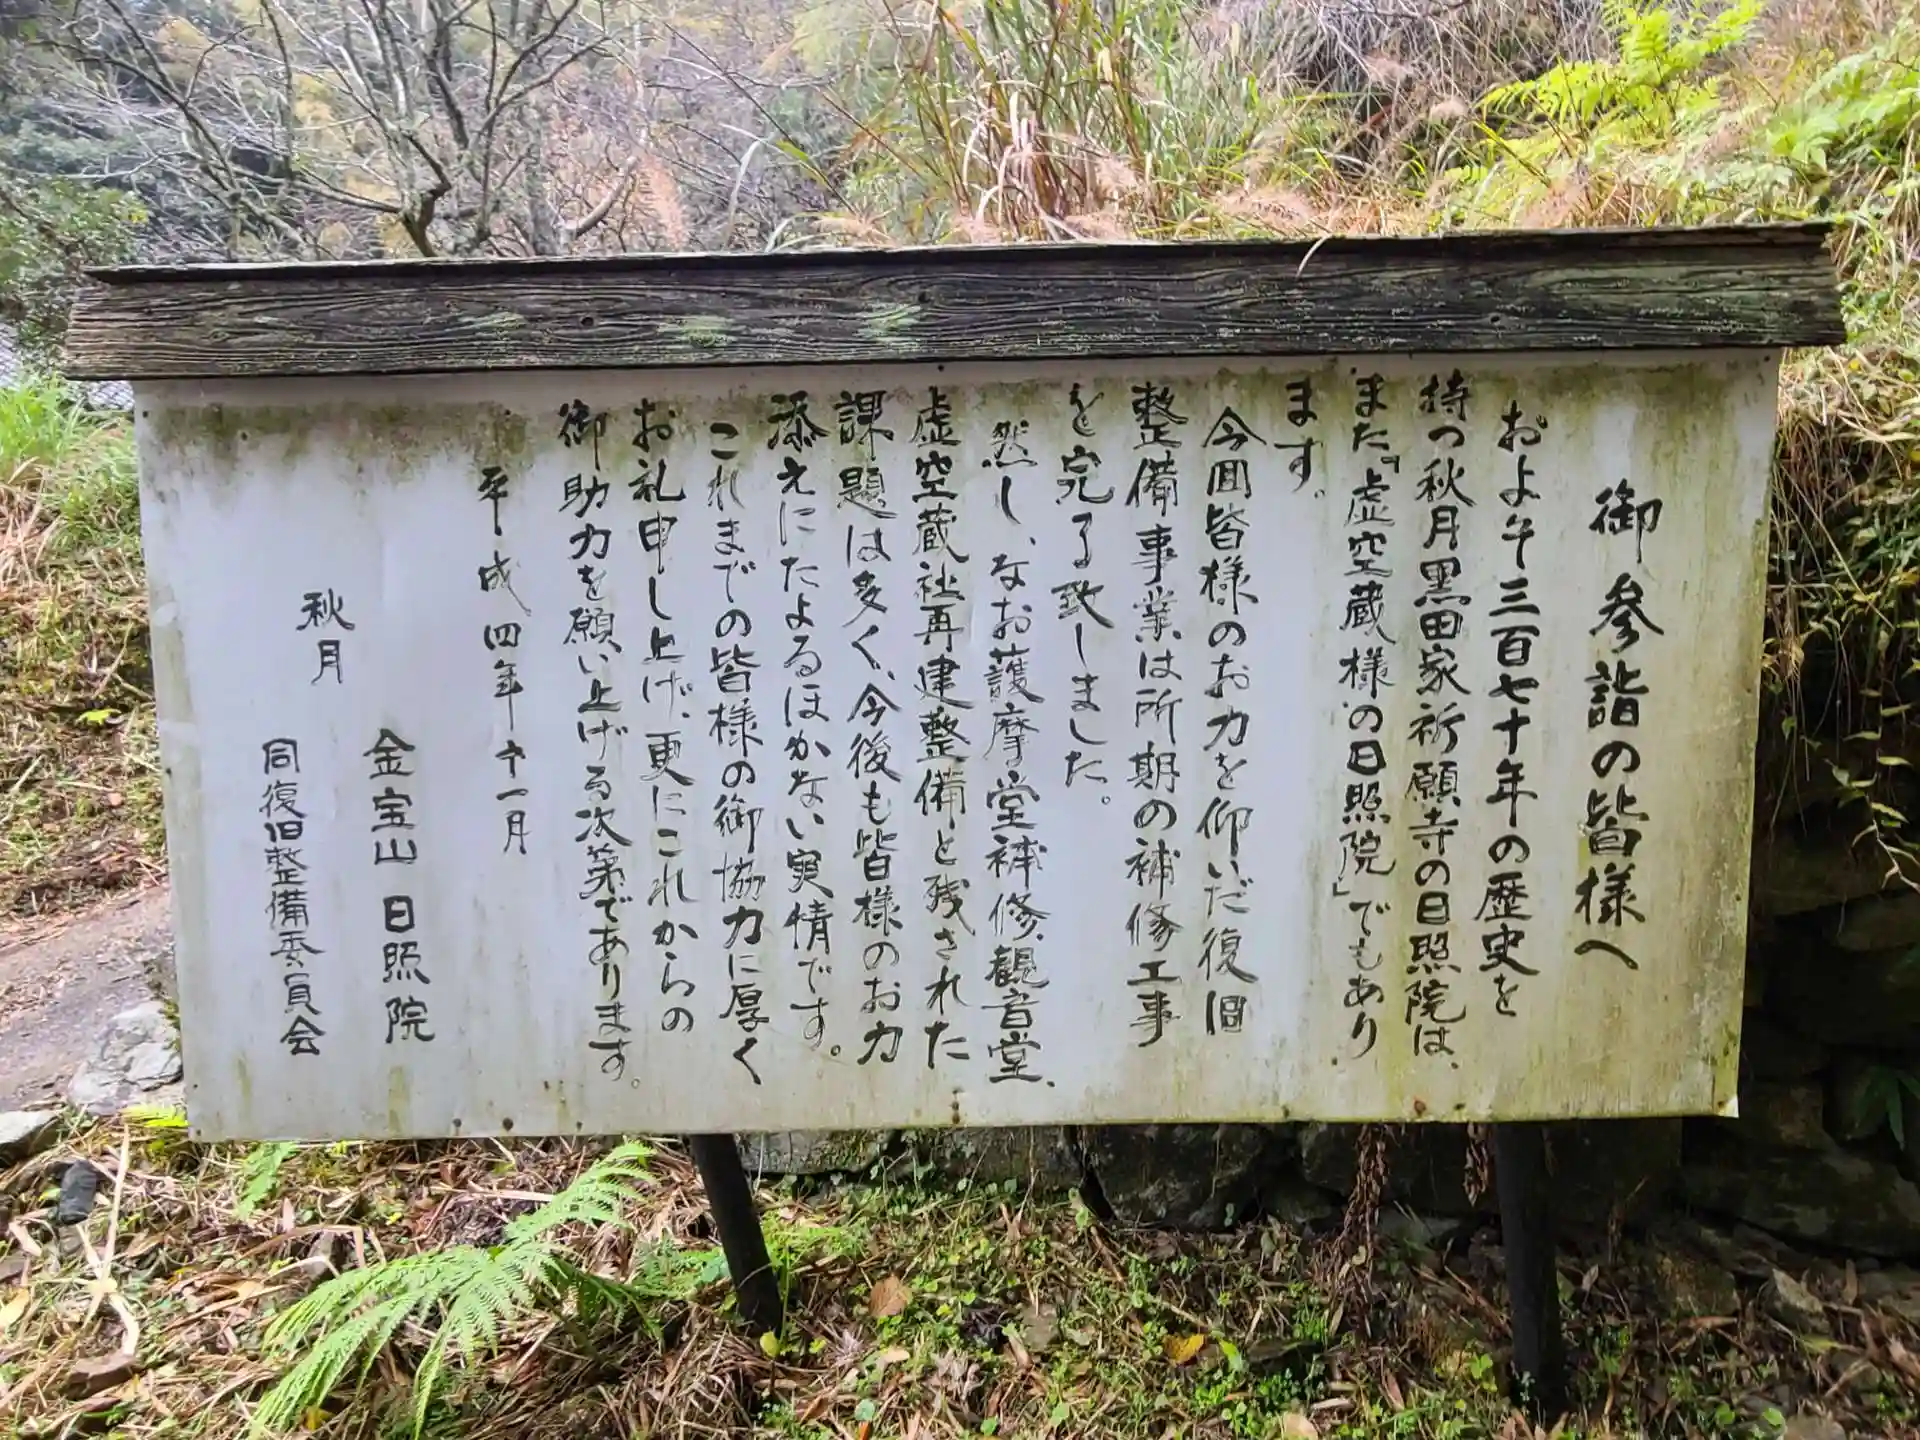 御参詣の皆様へ
およそ三百七十年の歴史を
持つ秋月黒田家祈願寺の日照院は、
また『虚空蔵様の日照院』でもあり
ます。
今回皆様のお力を仰いだ復旧
整備事業は所期の補修工事
を完了致しました。
然し、なお護摩堂補修、観音堂、
虚空蔵社再建整備と残された
課題は多く、今後も皆様のお力
添えにたよるほかない実情です。
これまでの皆様の御協力に厚く
お礼申し上げ、更にこれからの
御助力を願い上げる次第であります。
平成四年十一月
金宝山 日照院
秋月
同復旧整備委員会